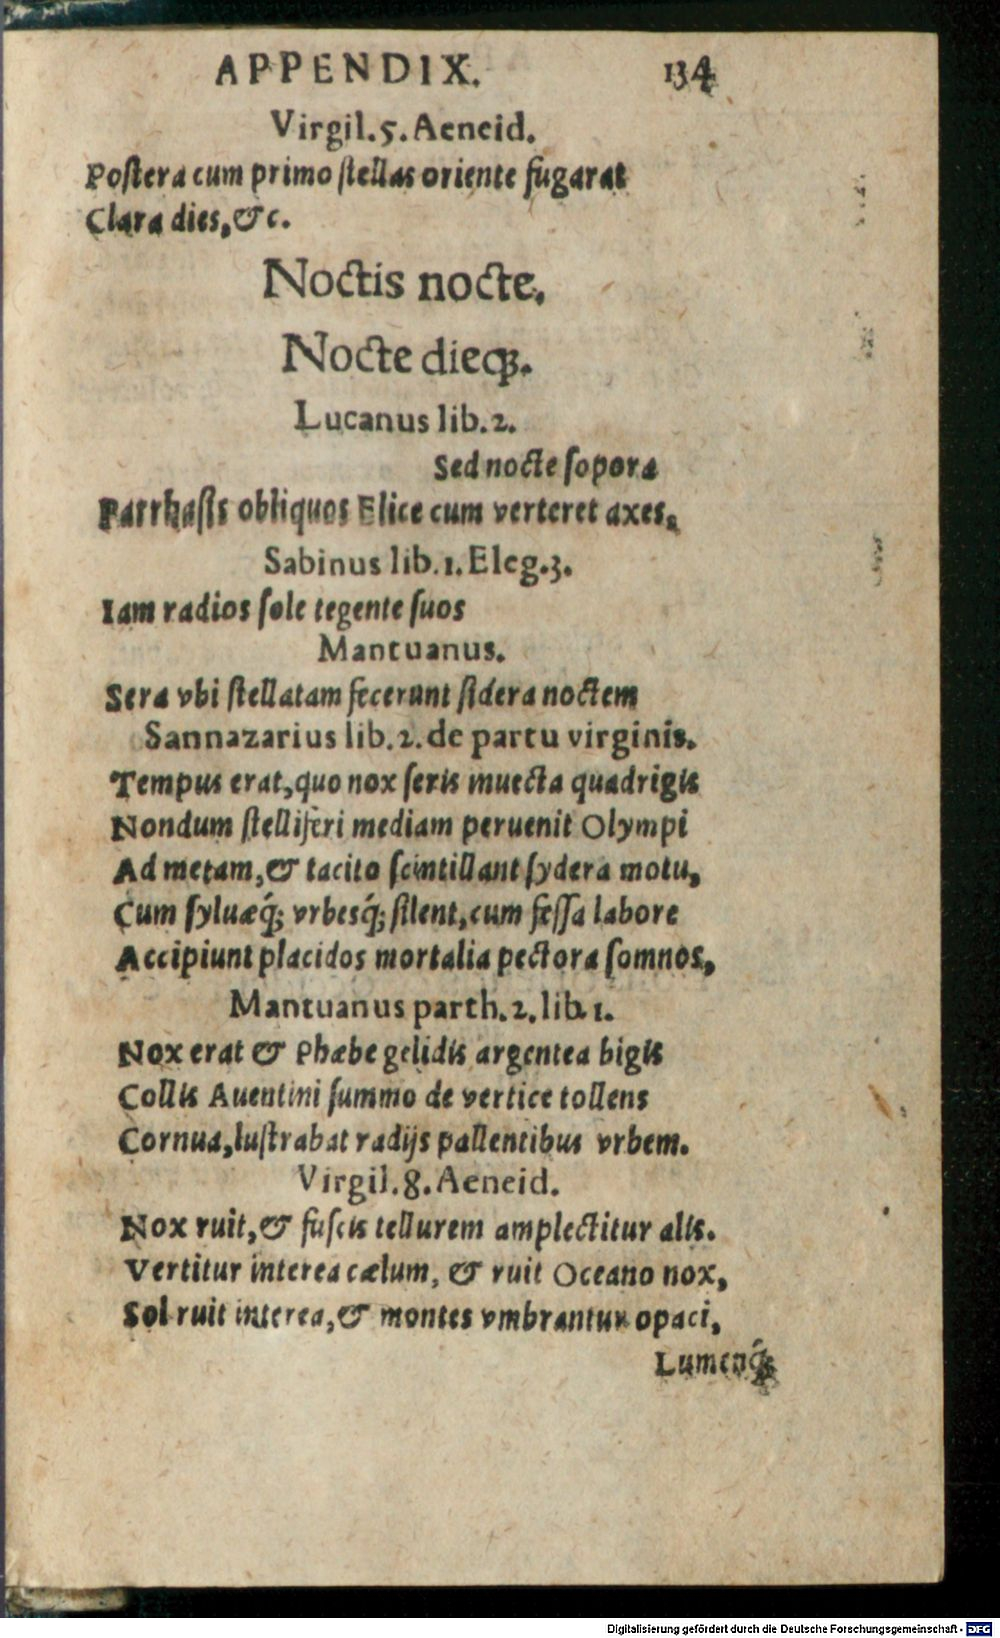 APPENDIX. 134
Virgil. 5. Aeneid.
Postera cum primo stellas oriente fugarat
Clara dies, &c.
Noctis nocte.
Nocte dieq;.
Lucanus lib. 2.
Sed nocte sopora
Parrhasis obliquos Elice cum verteret axes,
Sabinus lib. 1. Eleg. 3.
Iam radios sole tegente suos
Mantuanus.
Sera vbi stellatam fecerunt sidera noctem
Sannazarius lib. 2. de partu virginis.
Tempus erat, quo nox seris inuecta quadrigis
Nondum stelliferi mediam peruenit Olympi
Ad metam, & tacito scintillant sydera motu,
Cum syluæq́; vrbesq́; silent, cum fessa labore
Accipiunt placidos mortalia pectora somnos,
Mantuanus parth. 2. lib. 1.
Nox erat & Phæbe gelidis argentea bigis
Collis Auentini summo de vertice tollens
Cornua, lustrabat radijs pallentibus vrbem.
Virgil. 8. Aeneid.
Nox ruit, & fuscis tellurem amplectitur alis.
Vertitur interea cælum, & ruit Oceano nox,
Sol ruit interea, & montes vmbrantur opaci,
Lumenq́;
Digitalisierung gefördert durch die Deutsche Forschungsgemeinschaft - DFG